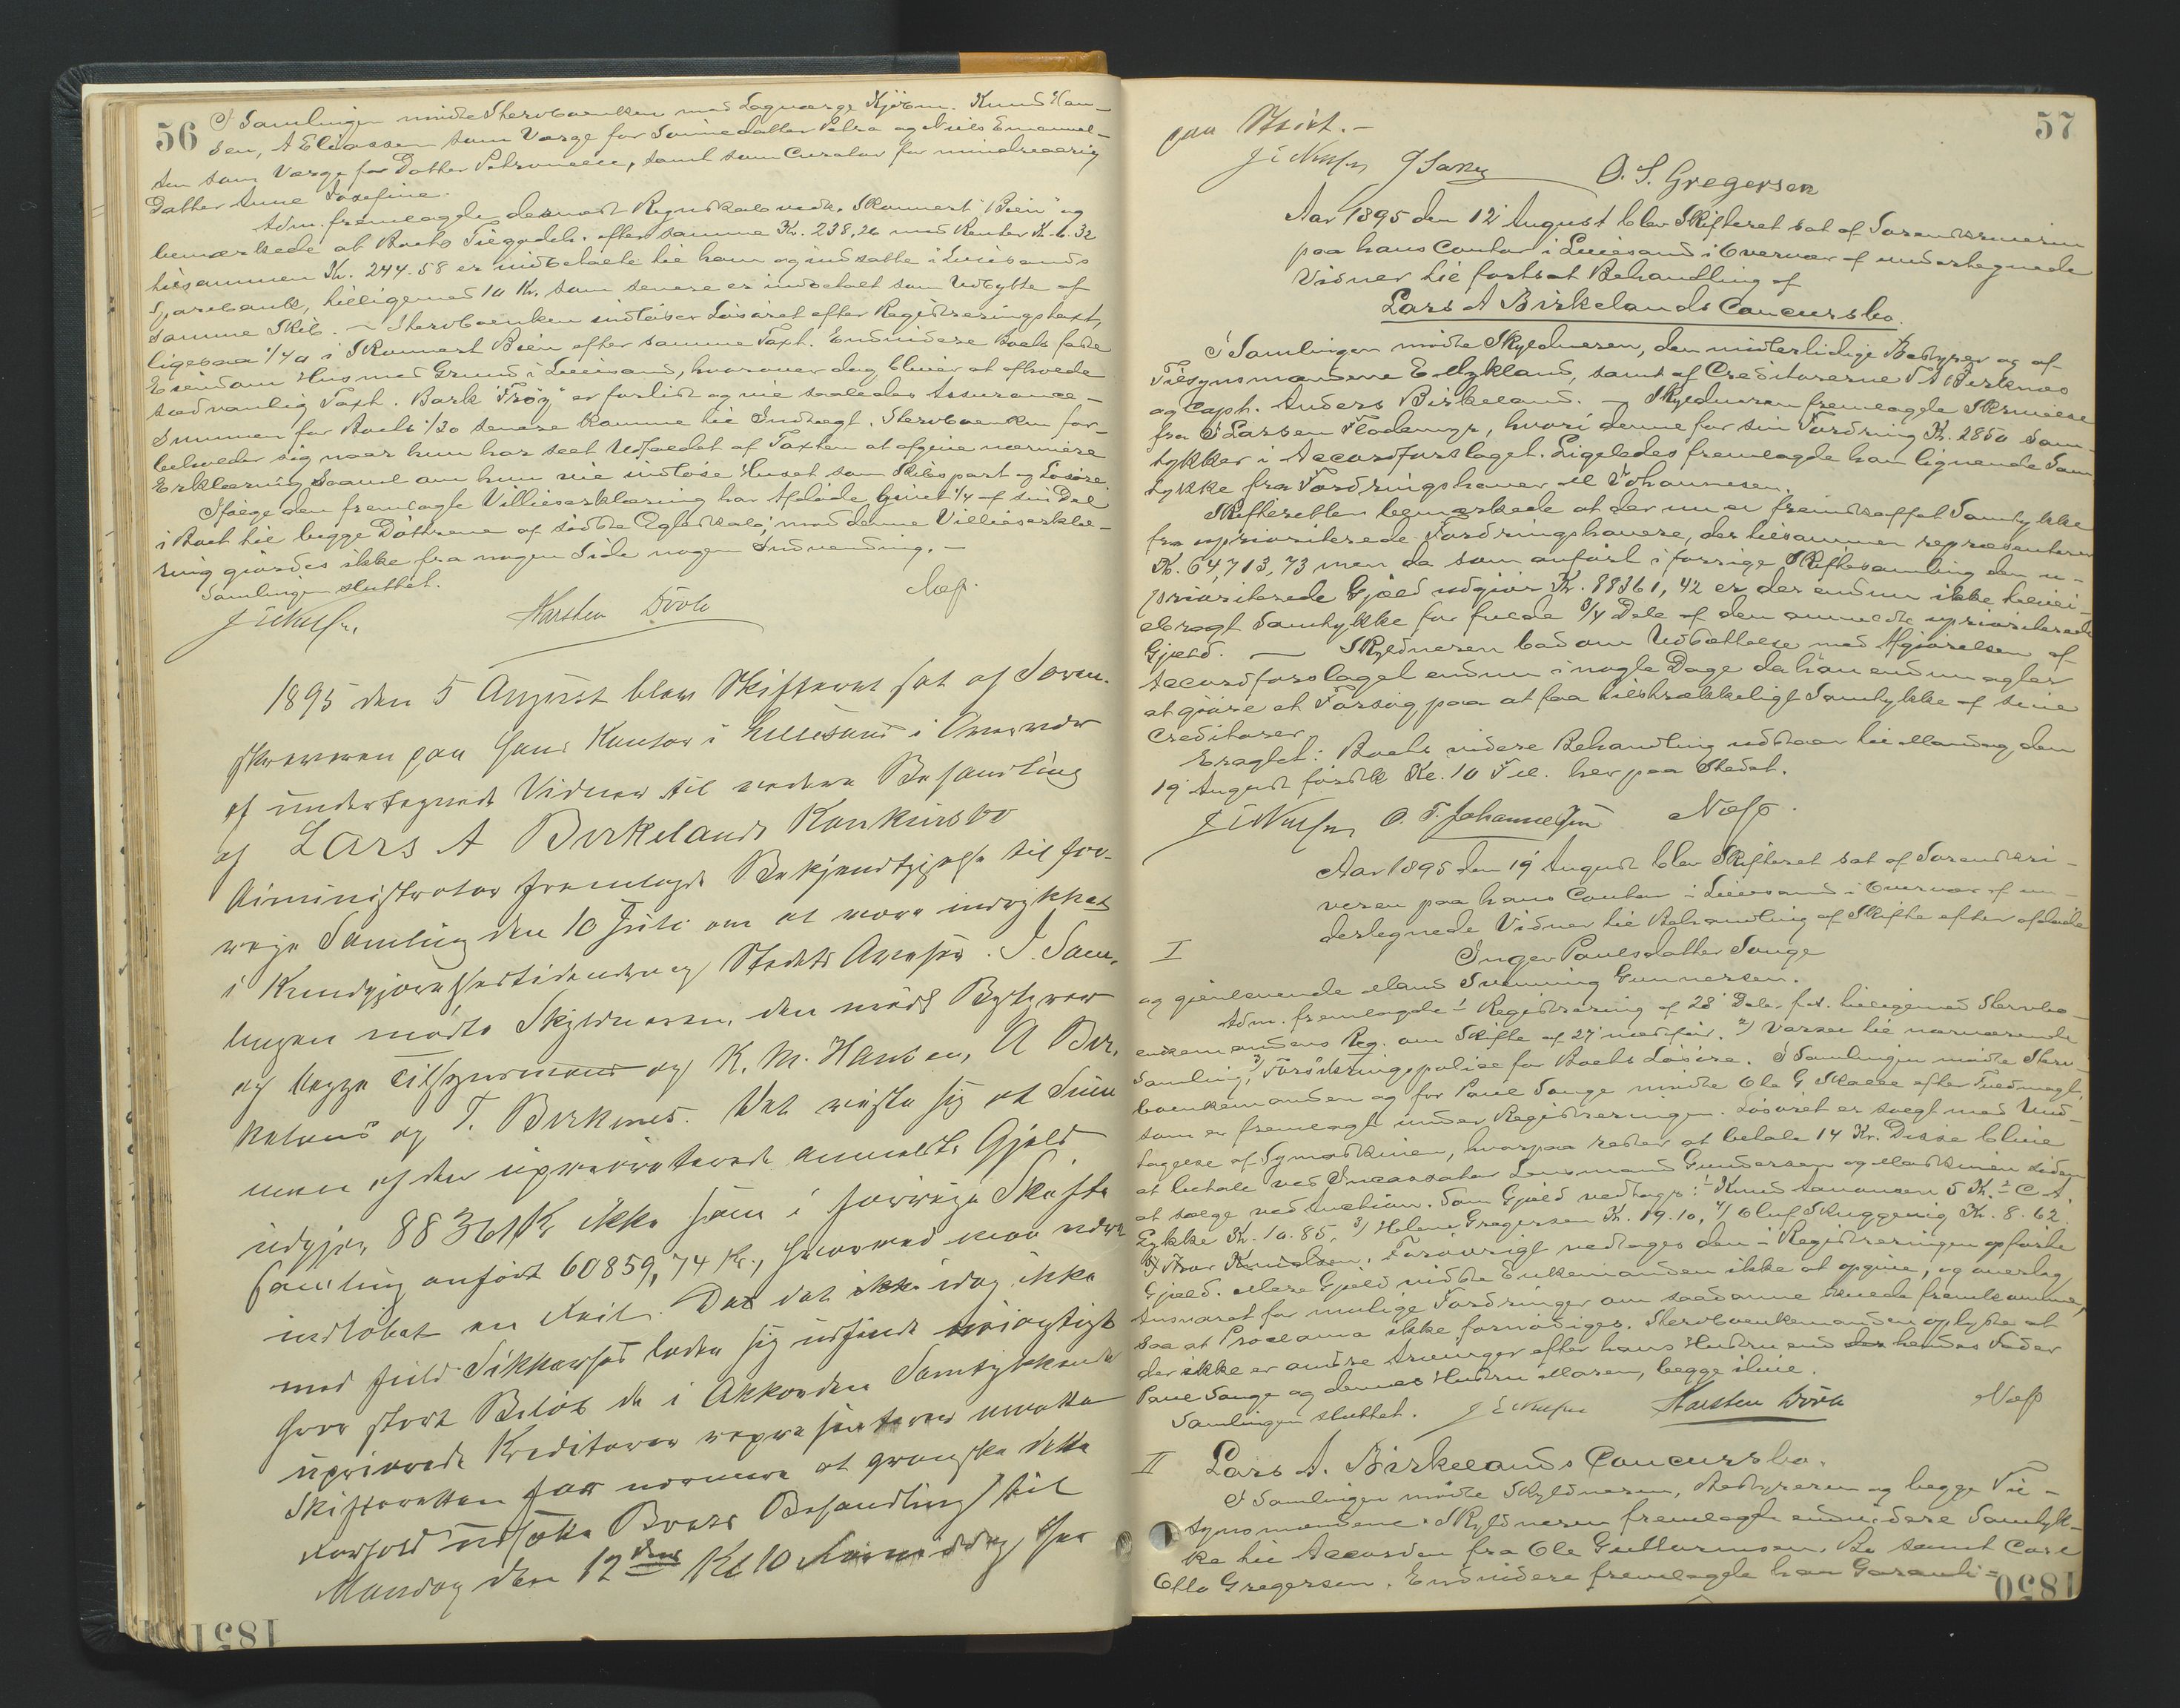 56
I Samlingen mødte Stervboenken med Laugværge Kjøbm. Knud Han-
sen, A Eliassen som Værge for Sønnedatter Petra og Niels Emanuel-
sen som Værge for Datter Petronelle, samt som Curator for mindreaarig
Datter Anne Josefine.
Adm. fremlagde dernæst Regnskab vedk. Skonnert "Bien" og
bemærkede at Boets Tilgodeh. efter samme Kr. 238,26 med Renter Kr. 6.32
tilsammen Kr. 244.58 er indbetalt til ham og indsatte i Lillesands
Sparebank, tilligemed 10 Kr. som senere er indbetalt som Udbytte af
samme Skib. - Stervboenken indløser Løsøret efter Registreringstaxt,
ligesaa 1/40 i Skonnert Bien efter samme Taxt. Endvidere Boets faste
Eiendom Hus med Grund i Lillesand, hvorover dog bliver at afholde
sædvanlig Taxt. Bark "Frøy" er forlist og vil saaledes Assurance-
Summen for Boets 1/20 senere komme til Indtægt. Stervboenken for-
beholder sig naar hun har seet Udfaldet af Taxten at afgive nærmere
Erklæring saavel om hun vil indløse Huset som Skibspart og Løsøre.
Ifølge den fremlagte Villieserklæring har Afdøde givet 1/4 af sin Del
i Boet til begge Døttrene af sidste Ægteskab; mod denne Villieserklæ-
ring gjordes ikke fra nogen Side nogen Indvending. -
Samlingen sluttet.
Næss.
Karsten Dövle
1895 den 5 August blev Skifteret sat af Soren-
skriveren paa hans Kontor i Lillesand i Overvær
af undertegnede Vidner til videre Behandling
af Lars A Birkelands Konkursbo
Administrator fremlagde Bekjendtgjørelse til for-
rige Samling den 10 Juli om at være indrykket
i Kundgjørelsestidende og Stedets Avis. I Sam-
lingen mødte Skyldneren, den midl Bestyrer
og begge Tilsynsmænd og K. M. Hansen, A Bir-
keland og T. Birknes. Det viste sig at Sum-
men af den upriviterede anmeldte Gjæld
udgjør 88361 Kr ikke som i forrige Skifte
Samling anført 60859,74 Kr., hvorved var
indløbet en Feil. Da det ikke idag ikke
med fuld Sikkerhed lader sig udfinde nøiagtigt
hvor stort Beløb de i Akkorden Samtykkende
Kreditorer repræsenterer maatte
Skifteretten for nærmere at granske dette
Forhold udsætte Boets Behandling til
Mandag den 12te Kl 10 Formiddag her
57
paa Stedet. -
O. S. Gregersen
Aar 1895 den 12 August blev Skifteret sat af Sorenskriveren
paa hans Contor i Lillesand i Overvær af undertegnede
Vidner til fortsat Behandling af
Lars A Birkelands Concursbo.
I Samlingen mødte Skyldneren, den midlertidige Bestyrer og af
Tilsynsmændene E Nykland, samt af Creditorerne T A Birknes
og Capt. Anders Birkeland. - Skyldneren fremlagde Skrivelse
fra S Larsen Flademyr, hvori denne for sin Fordring Kr. 2850 sam-
tykker i Accordforslaget. Ligeledes fremlagde han lignende Sam-
tykke fra Fordringshaver M Johannesen.
Skifteretten bemærkede at der nu er fremskaffet Samtykke
fra uprioriterede Fordringshavere, der tilsammen repræsenterer
Kr. 64,713,73 men da som anført i forrige Skiftesamling den u-
prioriterede Gjæld udgjør Kr. 88361,42 er der endnu ikke tilvei-
ebragt Samtykke for fulde 3/4 Dele af den anmeldte uprioriterede
Gjæld. - Skyldneren bad om Udsættelse med Afgjørelsen af
Accordforslaget endnu i nogle Dage da han endnu agter
at gjøre et Forsøg paa at faa tilstrækkeligt Samtykke af sine
Creditorer.
Eragtet: Boets videre Behandling udstaar til Mandag den
19 August førstk Kl. 10 Fm. her paa Stedet.
O. T. Johannessen Næss.
Aar 1895 den 19 August blev Skifteret sat af Sorenskri-
veren paa hans Contor i Lillesand i Overvær af un-
dertegnede Vidner til Behandling af Skifte efter afdøde
I Inger Paulsdatter Sange
og gjenlevende Mand Svenning Gunnersen.
Adm. fremlagde 1) Registrering af 28 Dcb. f.A. tilligemed Stervbo-
enkemandens Beg. om Skifte af 27 nestfør. 2) Varsel til nærværende
Samling, 3) Forsikringspolice for Boets Løsøre. I Samlingen mødte Sterv-
boenkemanden og for Paul Sange mødte Ole G Skalle efter Fuldmagt,
som er fremlagt under Registreringen. Løsøret er solgt med Und-
tagelse af Symaskinen, hvorpaa rester at betale 14 Kr. Disse blive
at betale ved Incassator Lensmand Gundersen og Maskinen siden
at sælge ved Auction. Som Gjæld vedtages: 1) Knud Aanonsen 5 Kr. 2) C A.
Lykke Kr. 10.85, 3) Helene Gregersen Kr. 19.10, 4) Oluf Skuggevig Kr. 8.62
5) Ivar Knudsen. Forøvrigt vedtages den i Registreringen opførte
Gjæld. Mere Gjæld vidste Enkemanden ikke at opgive, og overtog
Ansvaret for mulige Fordringer om saadanne skulde fremkomme,
saa at Proclama ikke fornødiges. Stervboenkemanden oplyste at
der ikke er andre Arvinger efter hans Hustru end hendes Fader
Paul Sange og dennes Hustru Maren, begge ilive.
Samlingen sluttet. Karsten Dövle Næss
II Lars A. Birkelands Concursbo.
I Samlingen mødte Skyldneren, Bestyreren og begge Til-
synsmændene. Skyldneren fremlagde endvidere Samtyk-
ke til Accorden fra Ole Guttormsen. Bø samt Carl
Otto Gregersen. Endvidere fremlagde han Garanti=
1851
1850